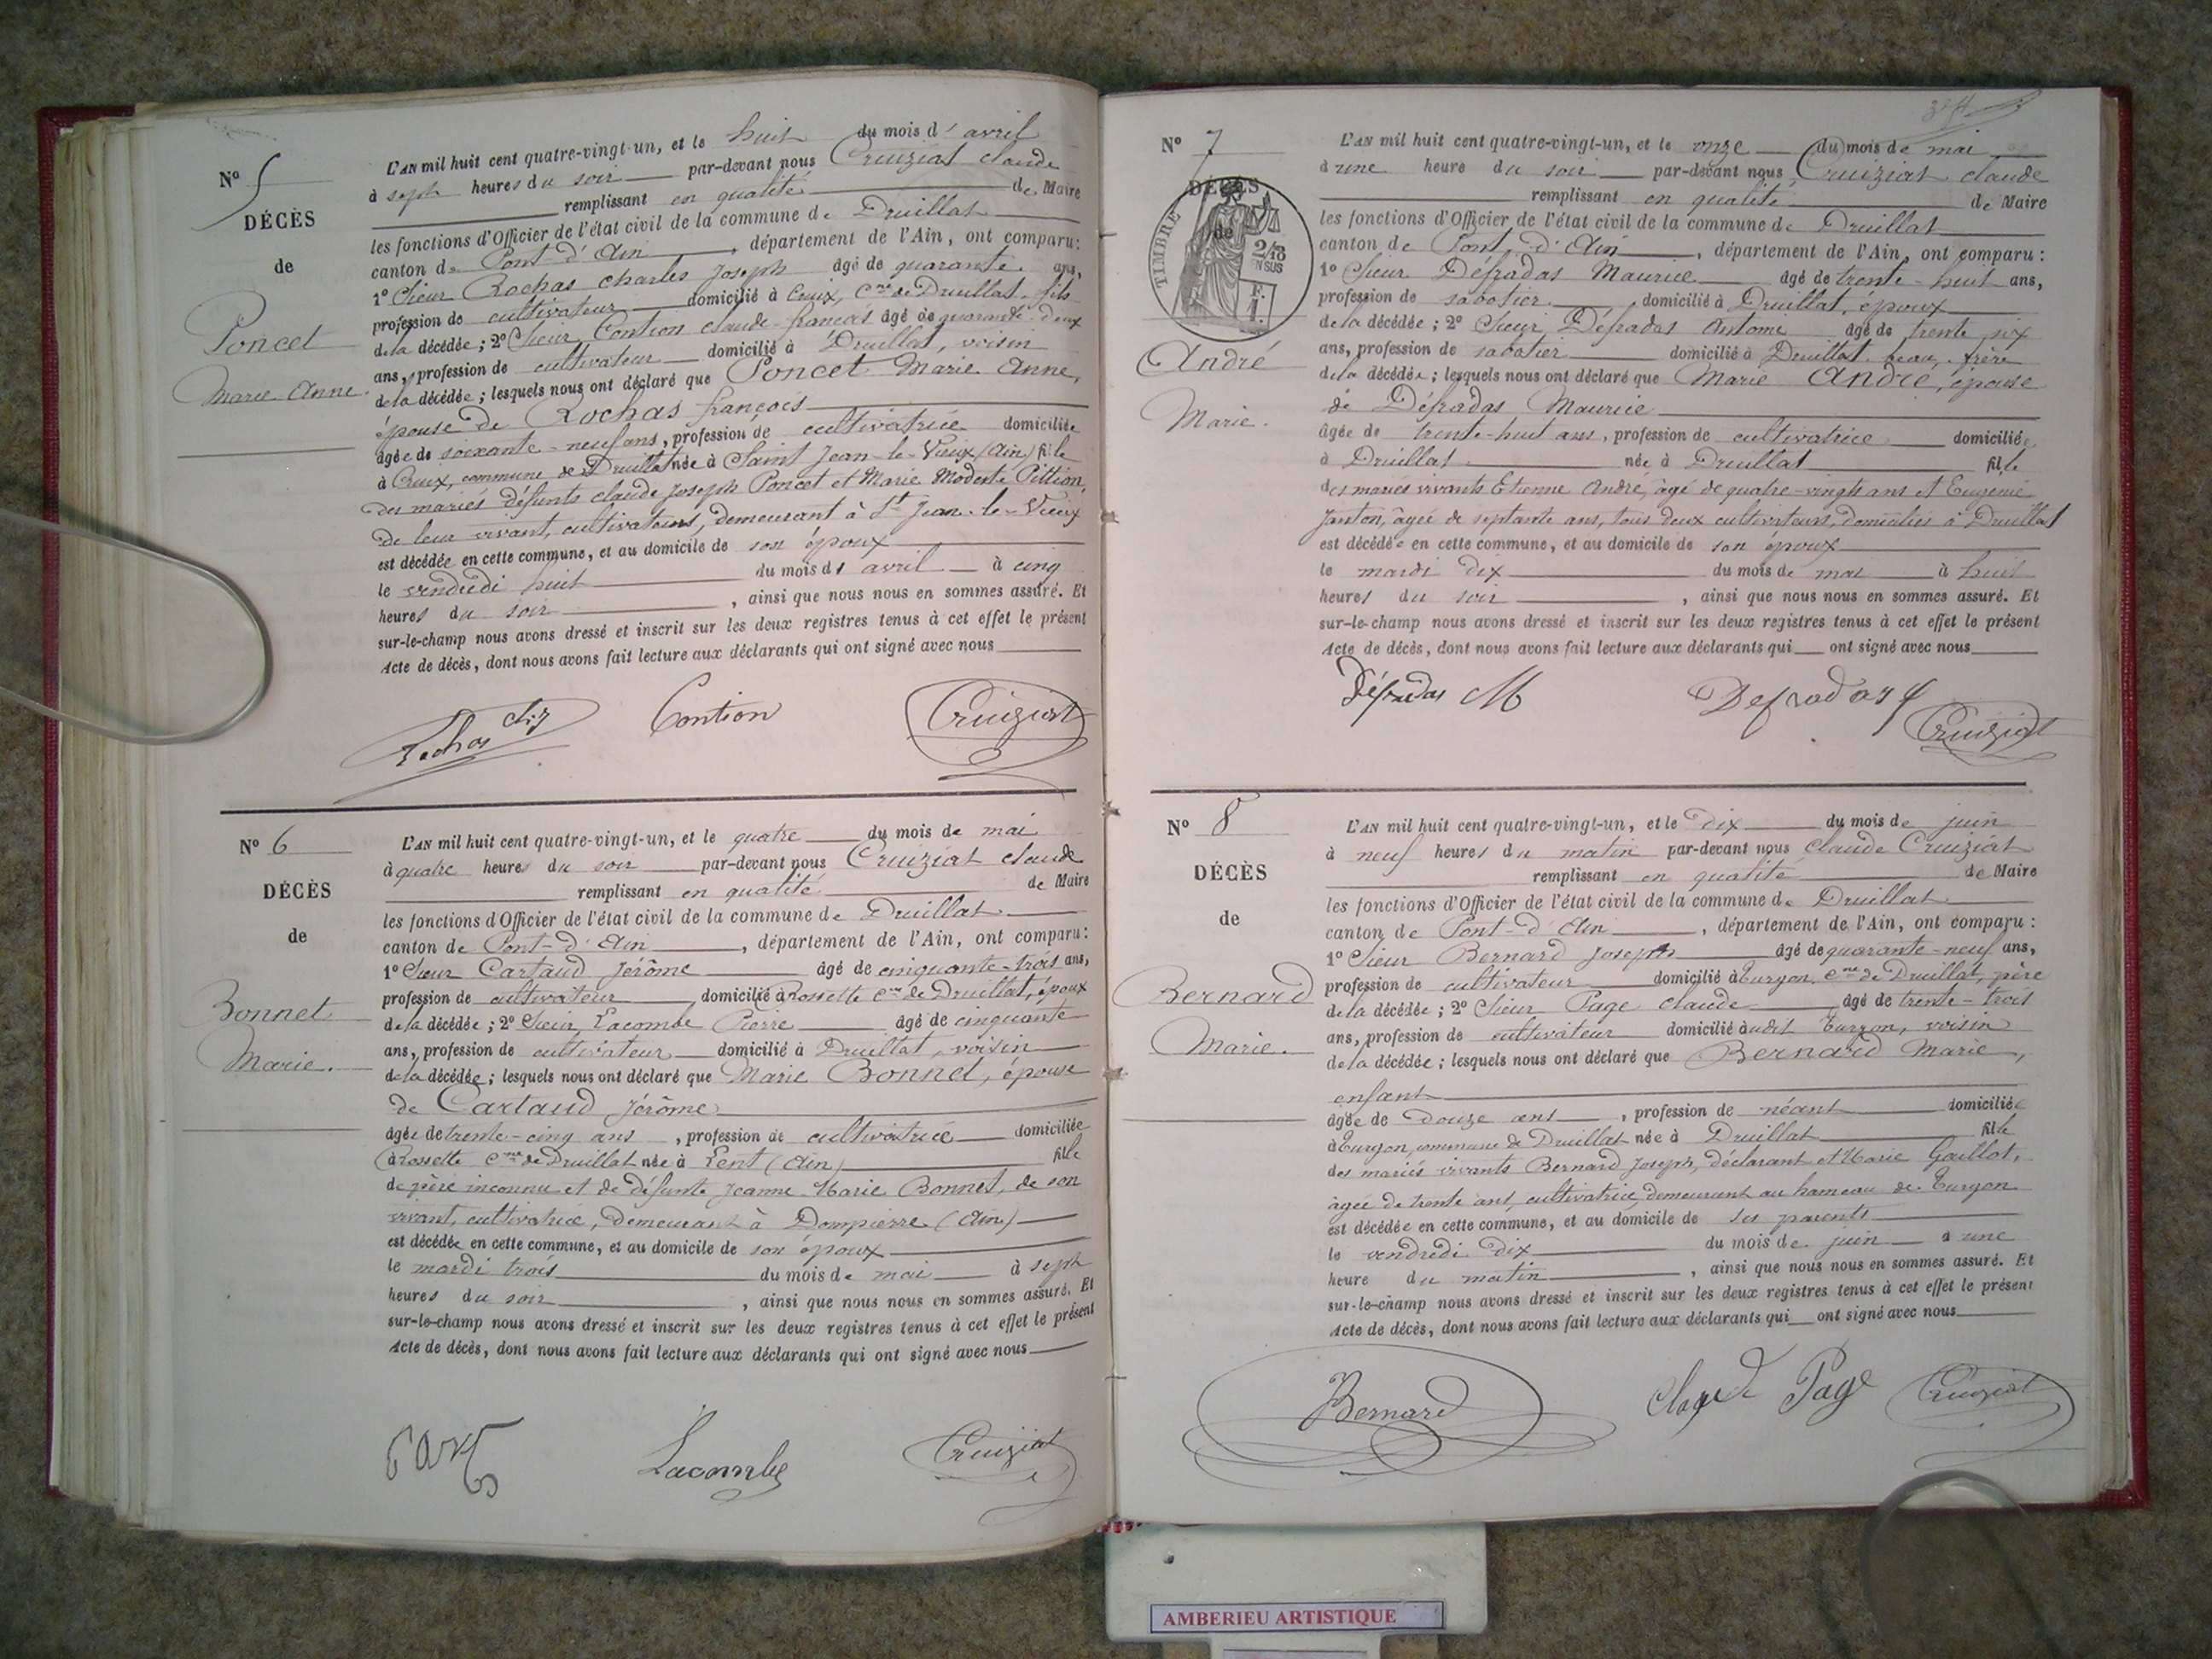 N° 5
DÉCÈS
de
Poncet
Marie Anne
L'AN mil huit cent quatre-vingt-un, et le huit du mois d'avril
à sept heures du soir par-devant nous Cruiziat claude
remplissant en qualité de Maire
les fonctions d'Officier de l'état civil de la commune de Druillat
canton de Pont-d'Ain, département de l'Ain, ont comparu:
1° Sieur Rochas charles Joseph âgé de quarante ans,
profession de cultivateur domicilié à Cruix, Cne de Druillat, fils
de la décédée; 2° Sieur Contion claude françois âgé de quarante-deux
ans, profession de cultivateur domicilié à Druillat, voisin
de la décédée; lesquels nous ont déclaré que Poncet Marie Anne,
épouse de Rochas françois
âgée de soixante-neuf ans, profession de cultivatrice domiciliée
à Cruix, commune de Druillat née à Saint Jean-le-Vieux (Ain) fille
des mariés défunts claude Joseph Poncet et Marie Modeste Pittion,
de leur vivant, cultivateurs, demeurant à St Jean-le-Vieux
est décédée en cette commune, et au domicile de son époux
le vendredi huit du mois d'avril à cinq
heures du soir, ainsi que nous nous en sommes assuré. Et
sur-le-champ nous avons dressé et inscrit sur les deux registres tenus à cet effet le présent
Acte de décès, dont nous avons fait lecture aux déclarants qui ont signé avec nous
Rochas Contion Cruiziat
N° 6
DÉCÈS
de
Bonnet
Marie.
L'AN mil huit cent quatre-vingt-un, et le quatre du mois de mai
à quatre heures du soir par-devant nous Cruiziat claude
remplissant en qualité de Maire
les fonctions d'Officier de l'état civil de la commune de Druillat
canton de Pont-d'Ain, département de l'Ain, ont comparu:
1° Sieur Cartaud Jérôme âgé de cinquante-trois ans,
profession de cultivateur domicilié à Rossette Cne de Druillat, époux
de la décédée; 2° Sieur Lacombe Pierre âgé de cinquante
ans, profession de cultivateur domicilié à Druillat, voisin
de la décédée; lesquels nous ont déclaré que Marie Bonnet, épouse
de Cartaud Jérôme
âgée de trente-cinq ans, profession de cultivatrice domiciliée
à Rossette Cne de Druillat née à Lent (Ain) fille
de père inconnu et de défunte Jeanne Marie Bonnet, de son
vivant, cultivatrice, demeurant à Dompierre (Ain)
est décédée en cette commune, et au domicile de son époux
le mardi trois du mois de mai à sept
heures du soir, ainsi que nous nous en sommes assuré. Et
sur-le-champ nous avons dressé et inscrit sur les deux registres tenus à cet effet le présent
Acte de décès, dont nous avons fait lecture aux déclarants qui ont signé avec nous
Lacombe Cruiziat
N° 7
DÉCÈS
de
TIMBRE
André
Marie.
L'AN mil huit cent quatre-vingt-un, et le onze du mois de mai
à une heure du soir par-devant nous Cruiziat claude
remplissant en qualité de Maire
les fonctions d'Officier de l'état civil de la commune de Druillat
canton de Pont-d'Ain, département de l'Ain, ont comparu:
1° Sieur Défradas Maurice âgé de trente-huit ans,
profession de sabotier, domicilié à Druillat, époux
de la décédée; 2° Sieur Défradas Antoine âgé de trente six
ans, profession de sabotier domicilié à Druillat, beau-frère
de la décédée; lesquels nous ont déclaré que Marie André, épouse
de Défradas Maurice
âgée de trente-huit ans, profession de cultivatrice domiciliée
à Druillat née à Druillat fille
des mariés vivants Etienne André, âgé de quatre-vingts ans et Eugénie
Janton, âgée de septante ans, tous deux cultivateurs, domiciliés à Druillat
est décédée en cette commune, et au domicile de son époux
le mardi dix du mois de mai à huit
heures du soir, ainsi que nous nous en sommes assuré. Et
sur-le-champ nous avons dressé et inscrit sur les deux registres tenus à cet effet le présent
Acte de décès, dont nous avons fait lecture aux déclarants qui ont signé avec nous
Défradas M Defradas Cruiziat
N° 8
DÉCÈS
de
Bernard
Marie.
L'AN mil huit cent quatre-vingt-un, et le dix du mois de juin
à neuf heures du matin par-devant nous claude Cruiziat
remplissant en qualité de Maire
les fonctions d'Officier de l'état civil de la commune de Druillat
canton de Pont-d'Ain, département de l'Ain, ont comparu:
1° Sieur Bernard Joseph âgé de quarante-neuf ans,
profession de cultivateur domicilié à Turgon, Cne de Druillat, père
de la décédée; 2° Sieur Page claude âgé de trente-trois
ans, profession de cultivateur domicilié audit Turgon, voisin
de la décédée; lesquels nous ont déclaré que Bernard Marie,
enfant
âgée de douze ans, profession de néant domiciliée
à Turgon, commune de Druillat née à Druillat fille
des mariés vivants Bernard Joseph, déclarant et Marie Gaillot,
âgée de trente ans, cultivatrice, demeurant au hameau de Turgon
est décédée en cette commune, et au domicile de ses parents
le vendredi dix du mois de juin à une
heure du matin, ainsi que nous nous en sommes assuré. Et
sur-le-champ nous avons dressé et inscrit sur les deux registres tenus à cet effet le présent
Acte de décès, dont nous avons fait lecture aux déclarants qui ont signé avec nous
Bernard Claude Page Cruiziat
AMBERIEU ARTISTIQUE